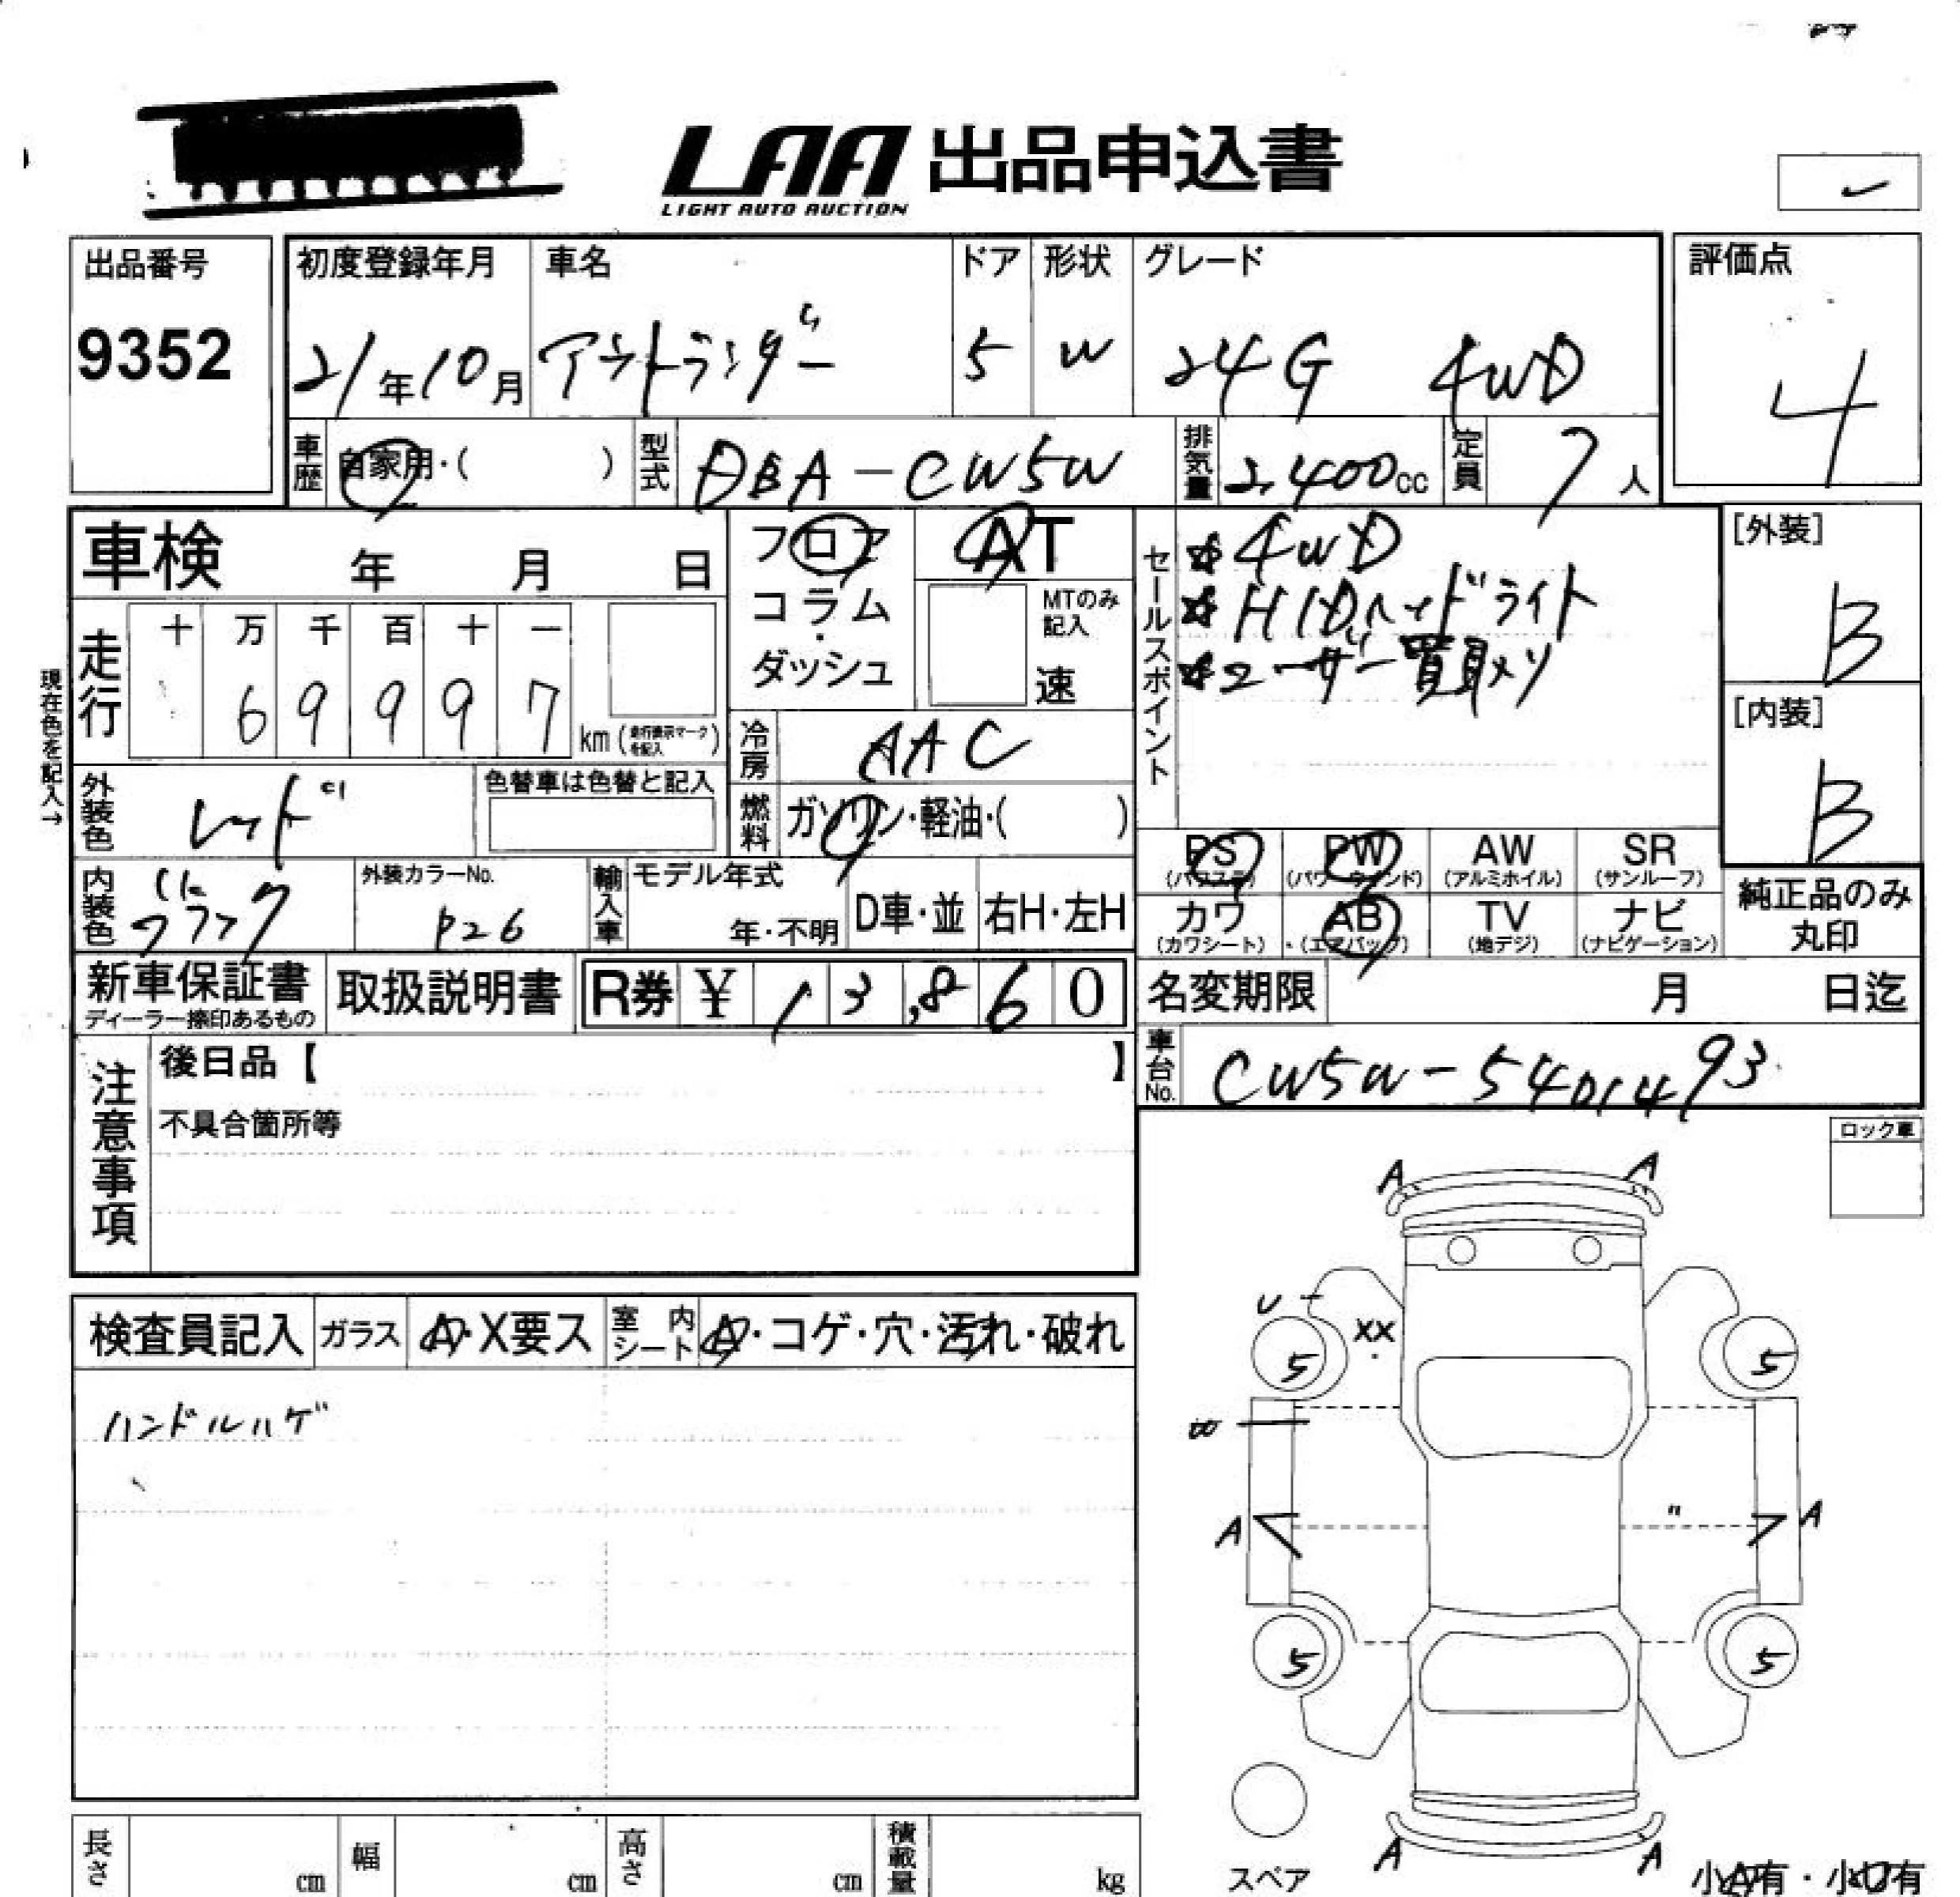 LAA 出品申込書
LIGHT AUTO AUCTION
出品番号 初度登録年月 車名 ドア 形状 グレード 評価点
9352 21年10月 アウトランダー 5 W 24G 4WD 4
車歴 自家用・( ) 型式 DBA-CW5W 排気量 2,400cc 定員 7人
車検 年 月 日
フロア・コラム・ダッシュ
AT
MTのみ記入
速
セールスポイント
☆4WD
☆HIDヘッドライト
☆ユーザー買取メリ
[外装]
B
[内装]
B
現在色を記入→
走行 十 万 千 百 十 一
6 9 9 9 7 km (走行表示マークを記入)
冷房 AAC
外装色 レッド 色替車は色替と記入
燃料 ガソリン・軽油・( )
内装色 ブラック
外装カラーNo.
P26
輸入車 モデル年式
年・不明 D車・並 右H・左H
PS PW AW SR
(パワステ) (パワーウインド) (アルミホイル) (サンルーフ)
カワ AB TV ナビ
(カワシート) (エアバッグ) (地デジ) (ナビゲーション)
純正品のみ
丸印
新車保証書
ディーラー捺印あるもの
取扱説明書 R券 ¥ 13,860
名変期限 月 日迄
車台No. CW5W-5401493
注意事項
後日品【 】
不具合箇所等
ロック車
検査員記入 ガラス A・X要ス 室内シート A・コゲ・穴・汚れ・破れ
ハンドルハゲ
A A
U
XX
5 5
W
A A
5 5
A A
スペア
小A有・小U有
長さ cm 幅 cm 高さ cm 積載量 kg